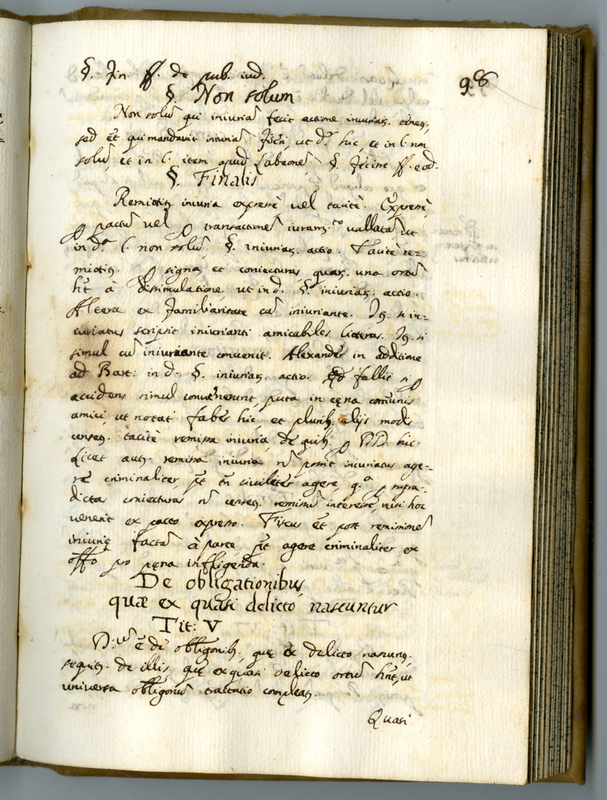 §. In ff. de pub. iud.
98
§ Non solum
Non solũ qui iniuriã fecit actione iniuriar. tenet,
sed et qui mandavit iniuriã fieri, ut dr hic, et in l. non
solũ, et in l. item apud Labeonẽ §. fecisse ff. eod.
§. Finalis
Remittit iniuria expresse vel tacite. Expresse
p pactũ vel p transactionẽ iuram.to vallatã ut
in d.a l. non solũ, §. iniuriar. actio. Tacite re-
mittit. p signa et coniecturas quar. una ortũ
hẽt à dissimulatione ut in d. §. iniuriar. actio.
Altera ex familiaritate cũ iniuriante.
iuriatus scripsit iniurianti amicabiles litteras.
simul cũ iniuriante convenit. Alexander in additione
ad Bart: in d. §. iniuriar. actio. fallit si
accidens simul convenerunt puta in cena comunis
amici, ut notat faber hic, et pluribꝫ alijs modis
censet. tacite remissa iniuria de quibꝫ p DD. hic.
Licet aut. remissa iniuria nõ possit iniuriatus age-
re criminaliter pt tñ civiliter agere q.a p supra-
dictas coniecturas nõ censet. remissũ interesse, nisi hoc
venerit ex pacto expresso. Fiscus et post remissionẽ
iniuriæ factã à parte pt agere criminaliter ex
offo suo pro pena infligenda.
De obligationibus
quæ ex quasi delicto nascuntur
Tit: V
est de obligonibꝫ. quæ ex delicto nascunt.
sequit. de illis quæ ex quasi delicto ortũ hñt, ut
universa obligonũ tractatio compleat.
Quasi